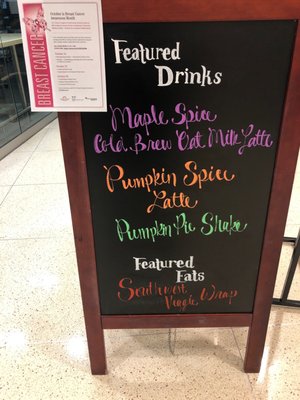 October is Breast Cancer
Awareness Month
BREAST CANCER
Featured
Drinks
Maple Spice
Cold Brew Oat Milk Latte
Pumpkin Spice
Latte
Pumpkin Pie Shake
Featured
Eats
Southwest
Veggie Wrap